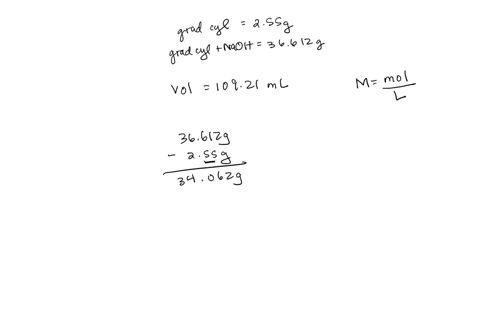 grad cyl = 2.55g
grad cyl + NaOH = 36.612g
Vol = 109.21 mL
M = mol/L
36.612g
- 2.55g
34.062g